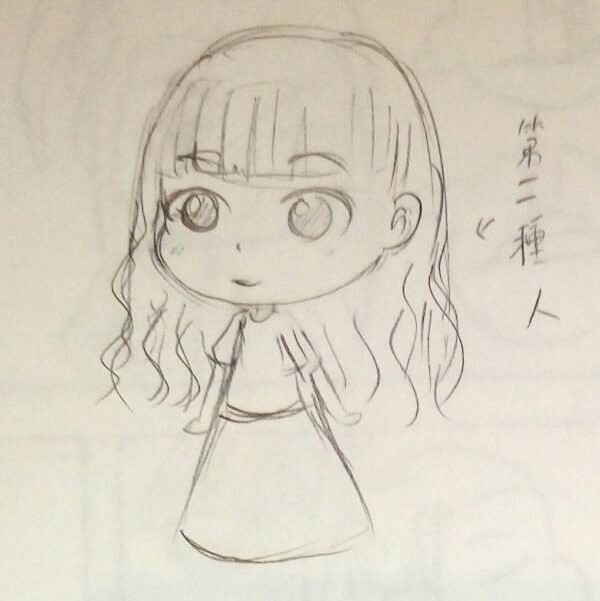 第二種人